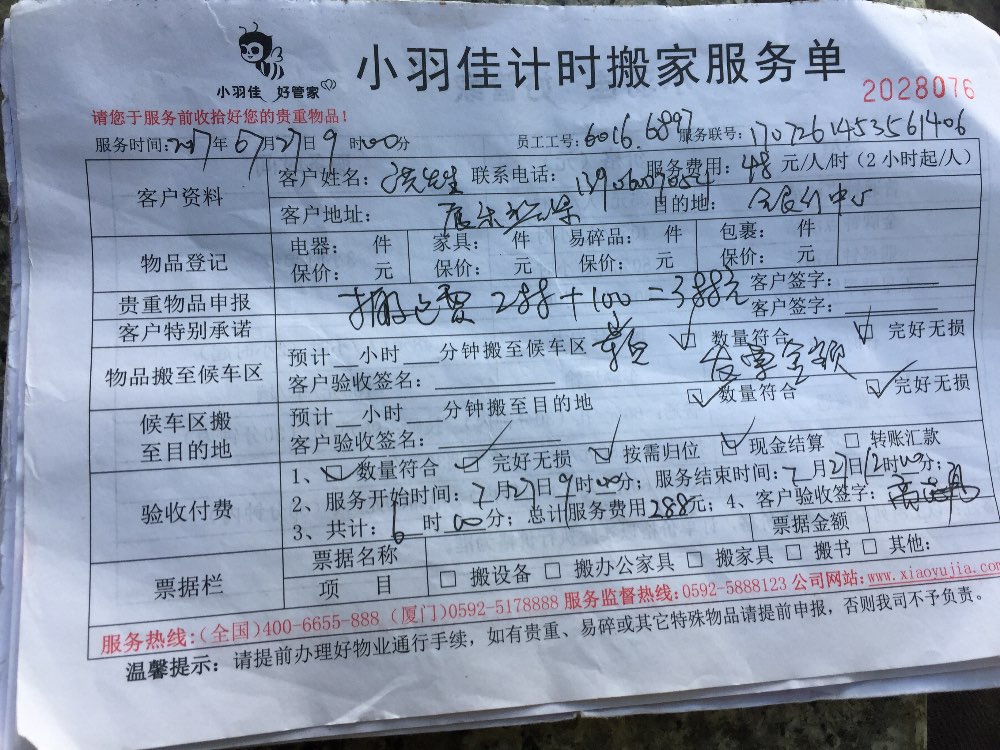 小羽佳 好管家
小羽佳计时搬家服务单
2028076
请您于服务前收拾好您的贵重物品！
服务时间：2017年 7月27日9时00分 员工工号：6016.6897 服务联号：1707261453561406
客户资料
客户姓名： 先生 联系电话： 服务费用：48元/人/时（2小时起/人）
客户地址： 目的地： 中心
物品登记
电器： 件 家具： 件 易碎品： 件 包裹： 件
保价： 元 保价： 元 保价： 元 保价： 元
贵重物品申报 客户签字：
搬运费 288+100=388元
客户特别承诺 客户签字：
物品搬至候车区
预计__小时___分钟搬至候车区 数量符合 完好无损
发票金额
客户验收签名：
候车区搬至目的地
预计__小时___分钟搬至目的地 数量符合 完好无损
客户验收签名：
验收付费
1、 数量符合 完好无损 按需归位 现金结算 转账汇款
2、服务开始时间：7月27日9时00分；服务结束时间：7月27日12时00分；
3、共计：6时00分；总计服务费用288元；4、客户验收签字：
票据栏
票据名称 票据金额
项 目 搬设备 搬办公家具 搬家具 搬书 其他：
服务热线：（全国）400-6655-888（厦门）0592-5178888 服务监督热线：0592-5888123 公司网站：www.xiaoyujia.com
温馨提示：请提前办理好物业通行手续，如有贵重、易碎或其它特殊物品请提前申报，否则我司不予负责。